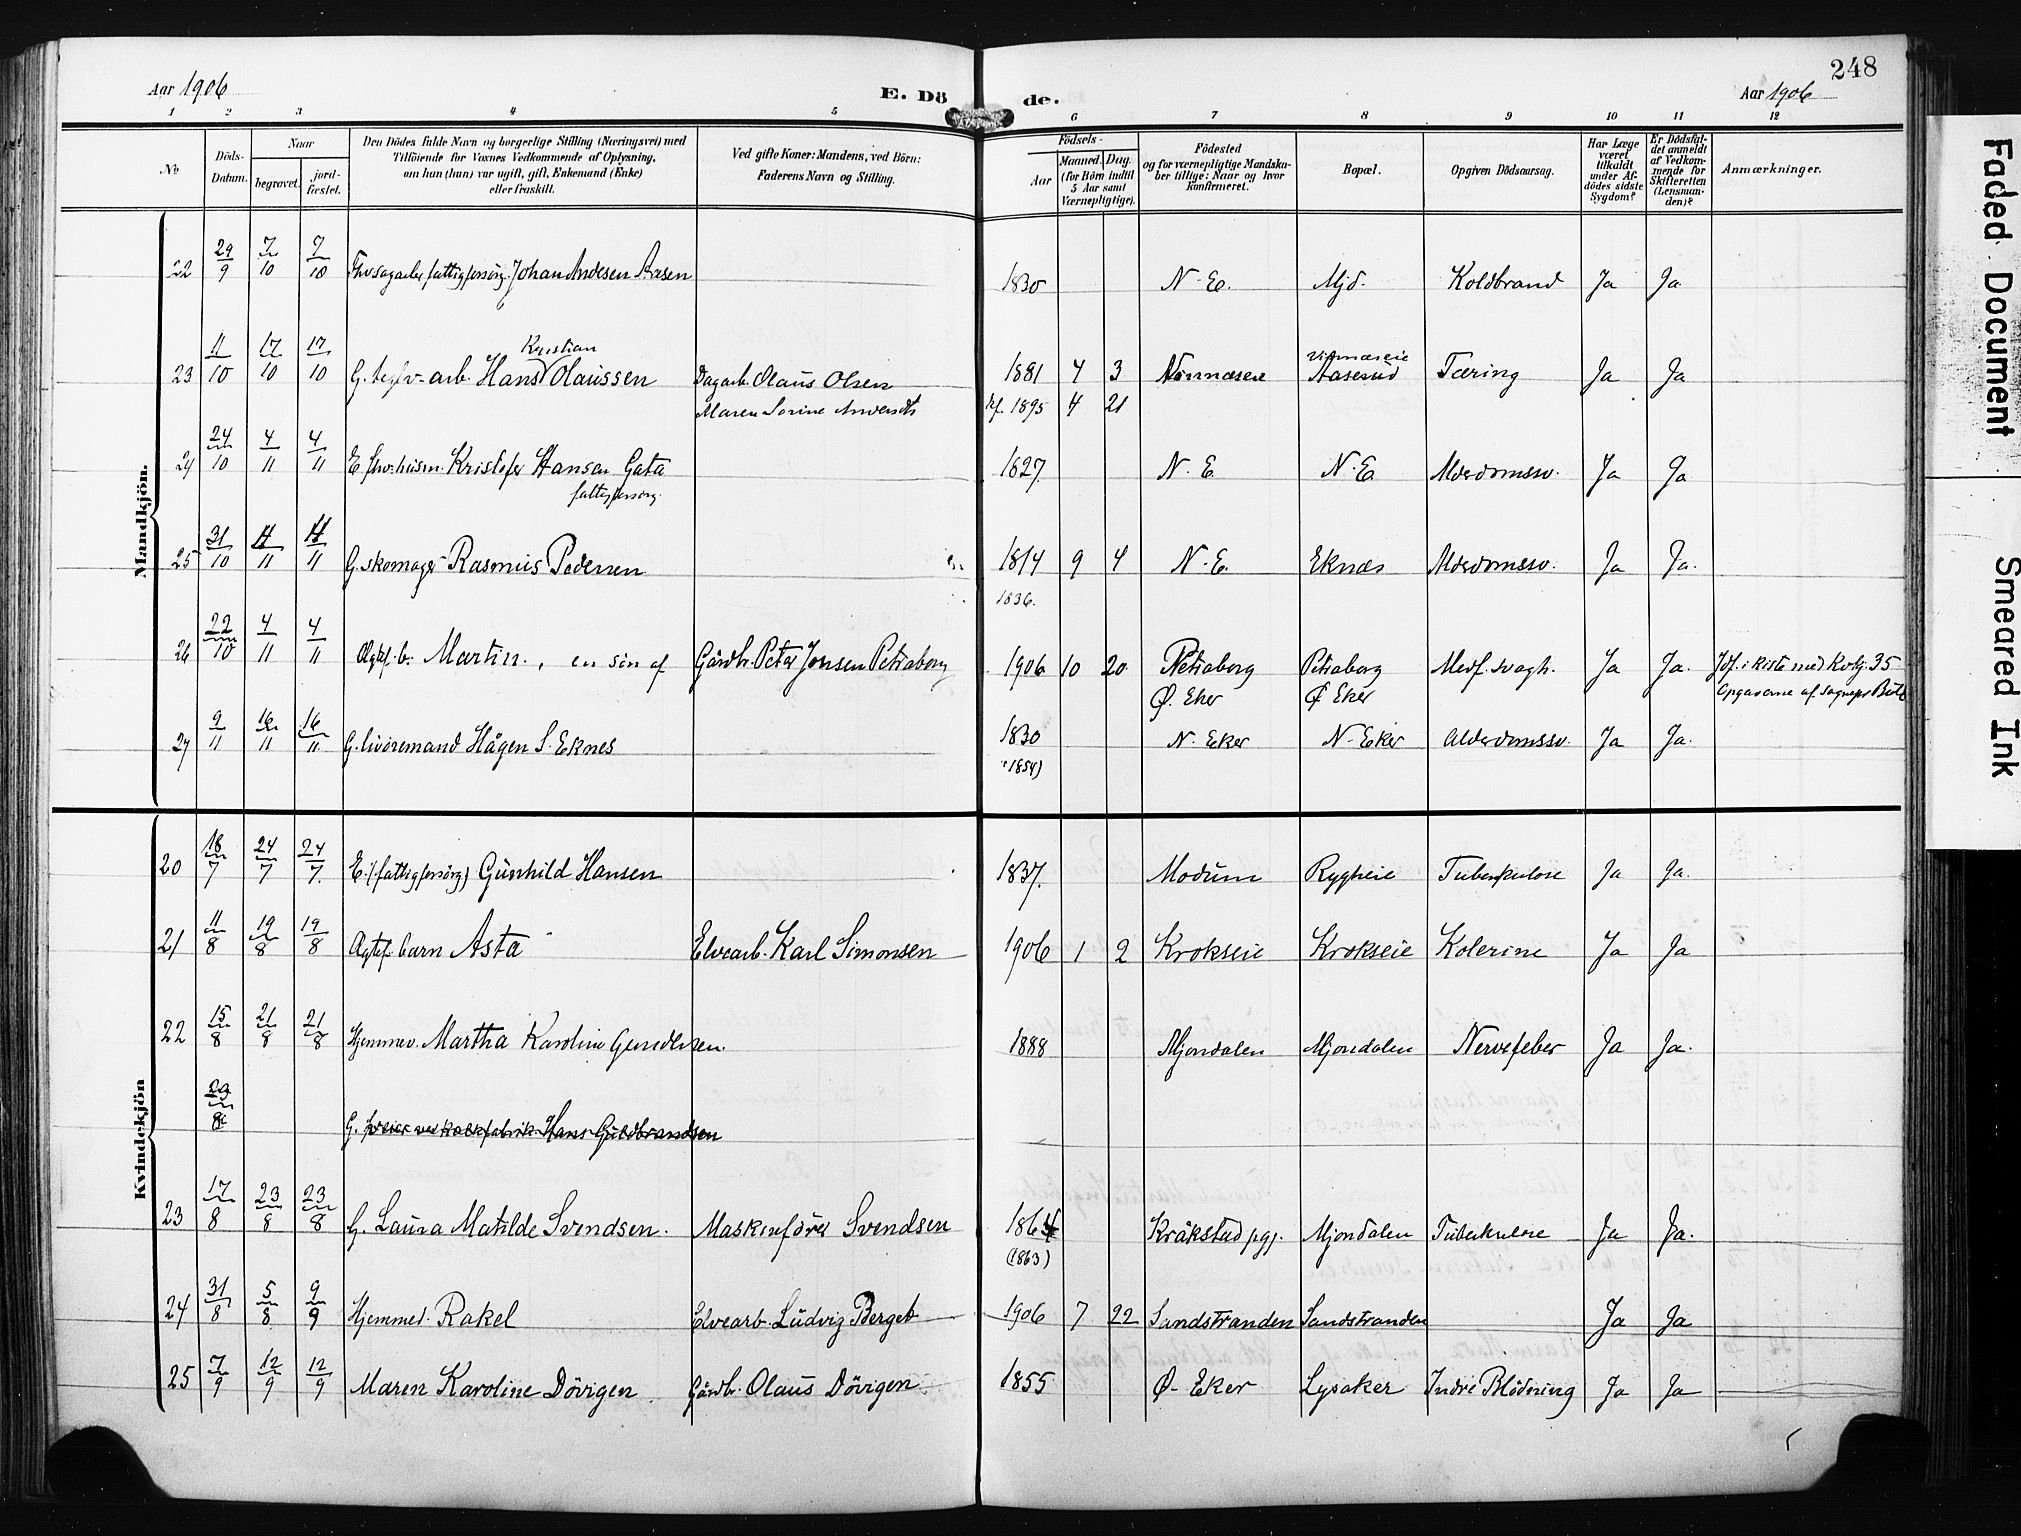 248
Aar 1906
E. Dö de.
Aar 1906
1 2 3 4 5 6 7 8 9 10 11 12
No
Döds-Datum.
Naar
begravet.
jord-fæstet.
Den Dödes fulde Navn og borgerlige Stilling (Næringsvei) med
Tilföiende for Voxnes Vedkommende af Oplysning,
om han (hun) var ugift, gift, Enkemand (Enke)
eller fraskilt.
Ved gifte Koner: Mandens, ved Börn:
Faderens Navn og Stilling.
Födsels-
Aar
Maaned. Dag.
(for Börn indtil
5 Aar samt
Værnepligtige).
Födested
og for værnepligtige Mandska-
ber tillige: Naar og hvor
konfirmeret.
Bopæl.
Opgiven Dödsaarsag.
Har Læge
været
tilkaldt
under Af-
dödes sidste
Sygdom?
Er Dödsfal-
det anmeldt
af Vedkom-
mende for
Skifteretten
(Lensman-
den)?
Anmærkninger.
Mandkjön.
22 29/9 7/10 7/10 Johan Andesen Aasen 1830 N. E. Mjd. Koldbrand Ja Ja
Kristian
23 11/10 17/10 17/10 Hans Olaussen Dagarb. Olaus Olsen 1881 4 3 Aaserud Tæring Ja Ja
Maren Sorine 1895 4 21
24 24/10 4/11 4/11 Kristofer Hansen Gata 1827. N. E. N. E. Alderdomssv. Ja Ja
fattigforsörg.
25 31/10 11 11 G. skomager Rasmus Pedersen 1814 9 4 N. E. Eknæs Alderdomssv. Ja Ja.
1836.
26 22/10 4/11 4/11 Ægtef. b. Martin., en sön af Gårdbr. Peter Jonsen Petraborg 1906 10 20 Petraborg Petraborg Medf. svagh. Ja Ja. Jdf. i kiste med Kvkj. 35
Ø. Eker Ø Eker
27 9/11 16/11 16/11 G. livöremand Hågen S. Eknes 1830 N. Eker N. Eker Alderdomssv. Ja Ja.
1854)
Kvindekjön
20 18/7 24/7 24/7. E. (fattigforsörg) Gunhild Hansen 1837. Modum Rygheie Tuberkulose Ja Ja.
21 11/8 19/8 19/8 Ægtef. barn Asta Elvearb. Karl Simonsen 1906 1 2 Krokseie Krokseie Kolerine Ja Ja
22 15/8 21/8 21/8 Hjemmev. Martha Karoline Gundersen. 1888 Mjondalen Mjondalen Nervefeber Ja Ja.
29/8 G. Hans Guldbrandsen
23 17/8 23/8 23/8 G. Laura Matilde Svendsen. Maskinförer Svendsen 1864 Kråkstad pgj. Mjondalen Tuberkulose Ja Ja.
(1863)
24 31/8 5/8 9/9 Hjemmed. Rakel Elvearb. Ludvig Berget 1906 7 22 Sandstranden Sandstranden Ja Ja
25 7/9 12/9 12/9 Maren Karoline Dövigen Gårdbr. Olaus Dövigen 1855 Ø. Eker Lysaker Indre Blödning Ja Ja
Faded Document
Smeared Ink